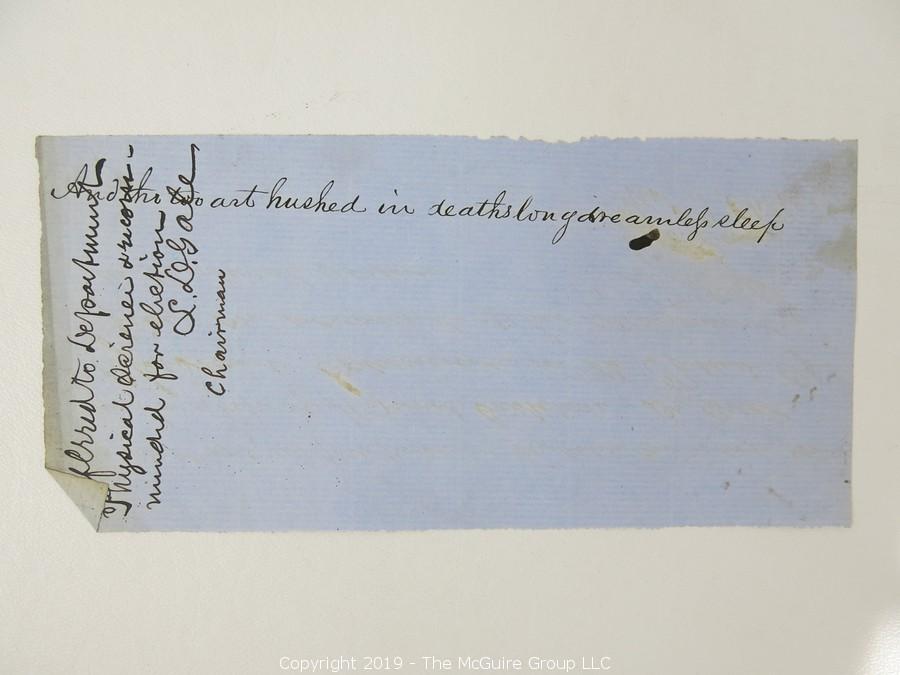 And tho oart hushed in deathslongdreamless sleep
ferred to Department
Physical Science & recom-
mended for election
L. D. Gale,
Chairman
Copyright 2019 - The McGuire Group LLC